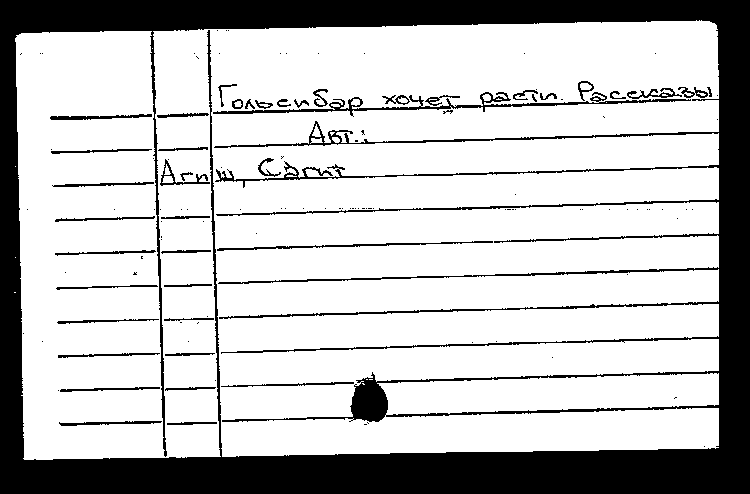 Гольсибар хочет расти. Рассказы
Авт.:
Агиш, Сагит